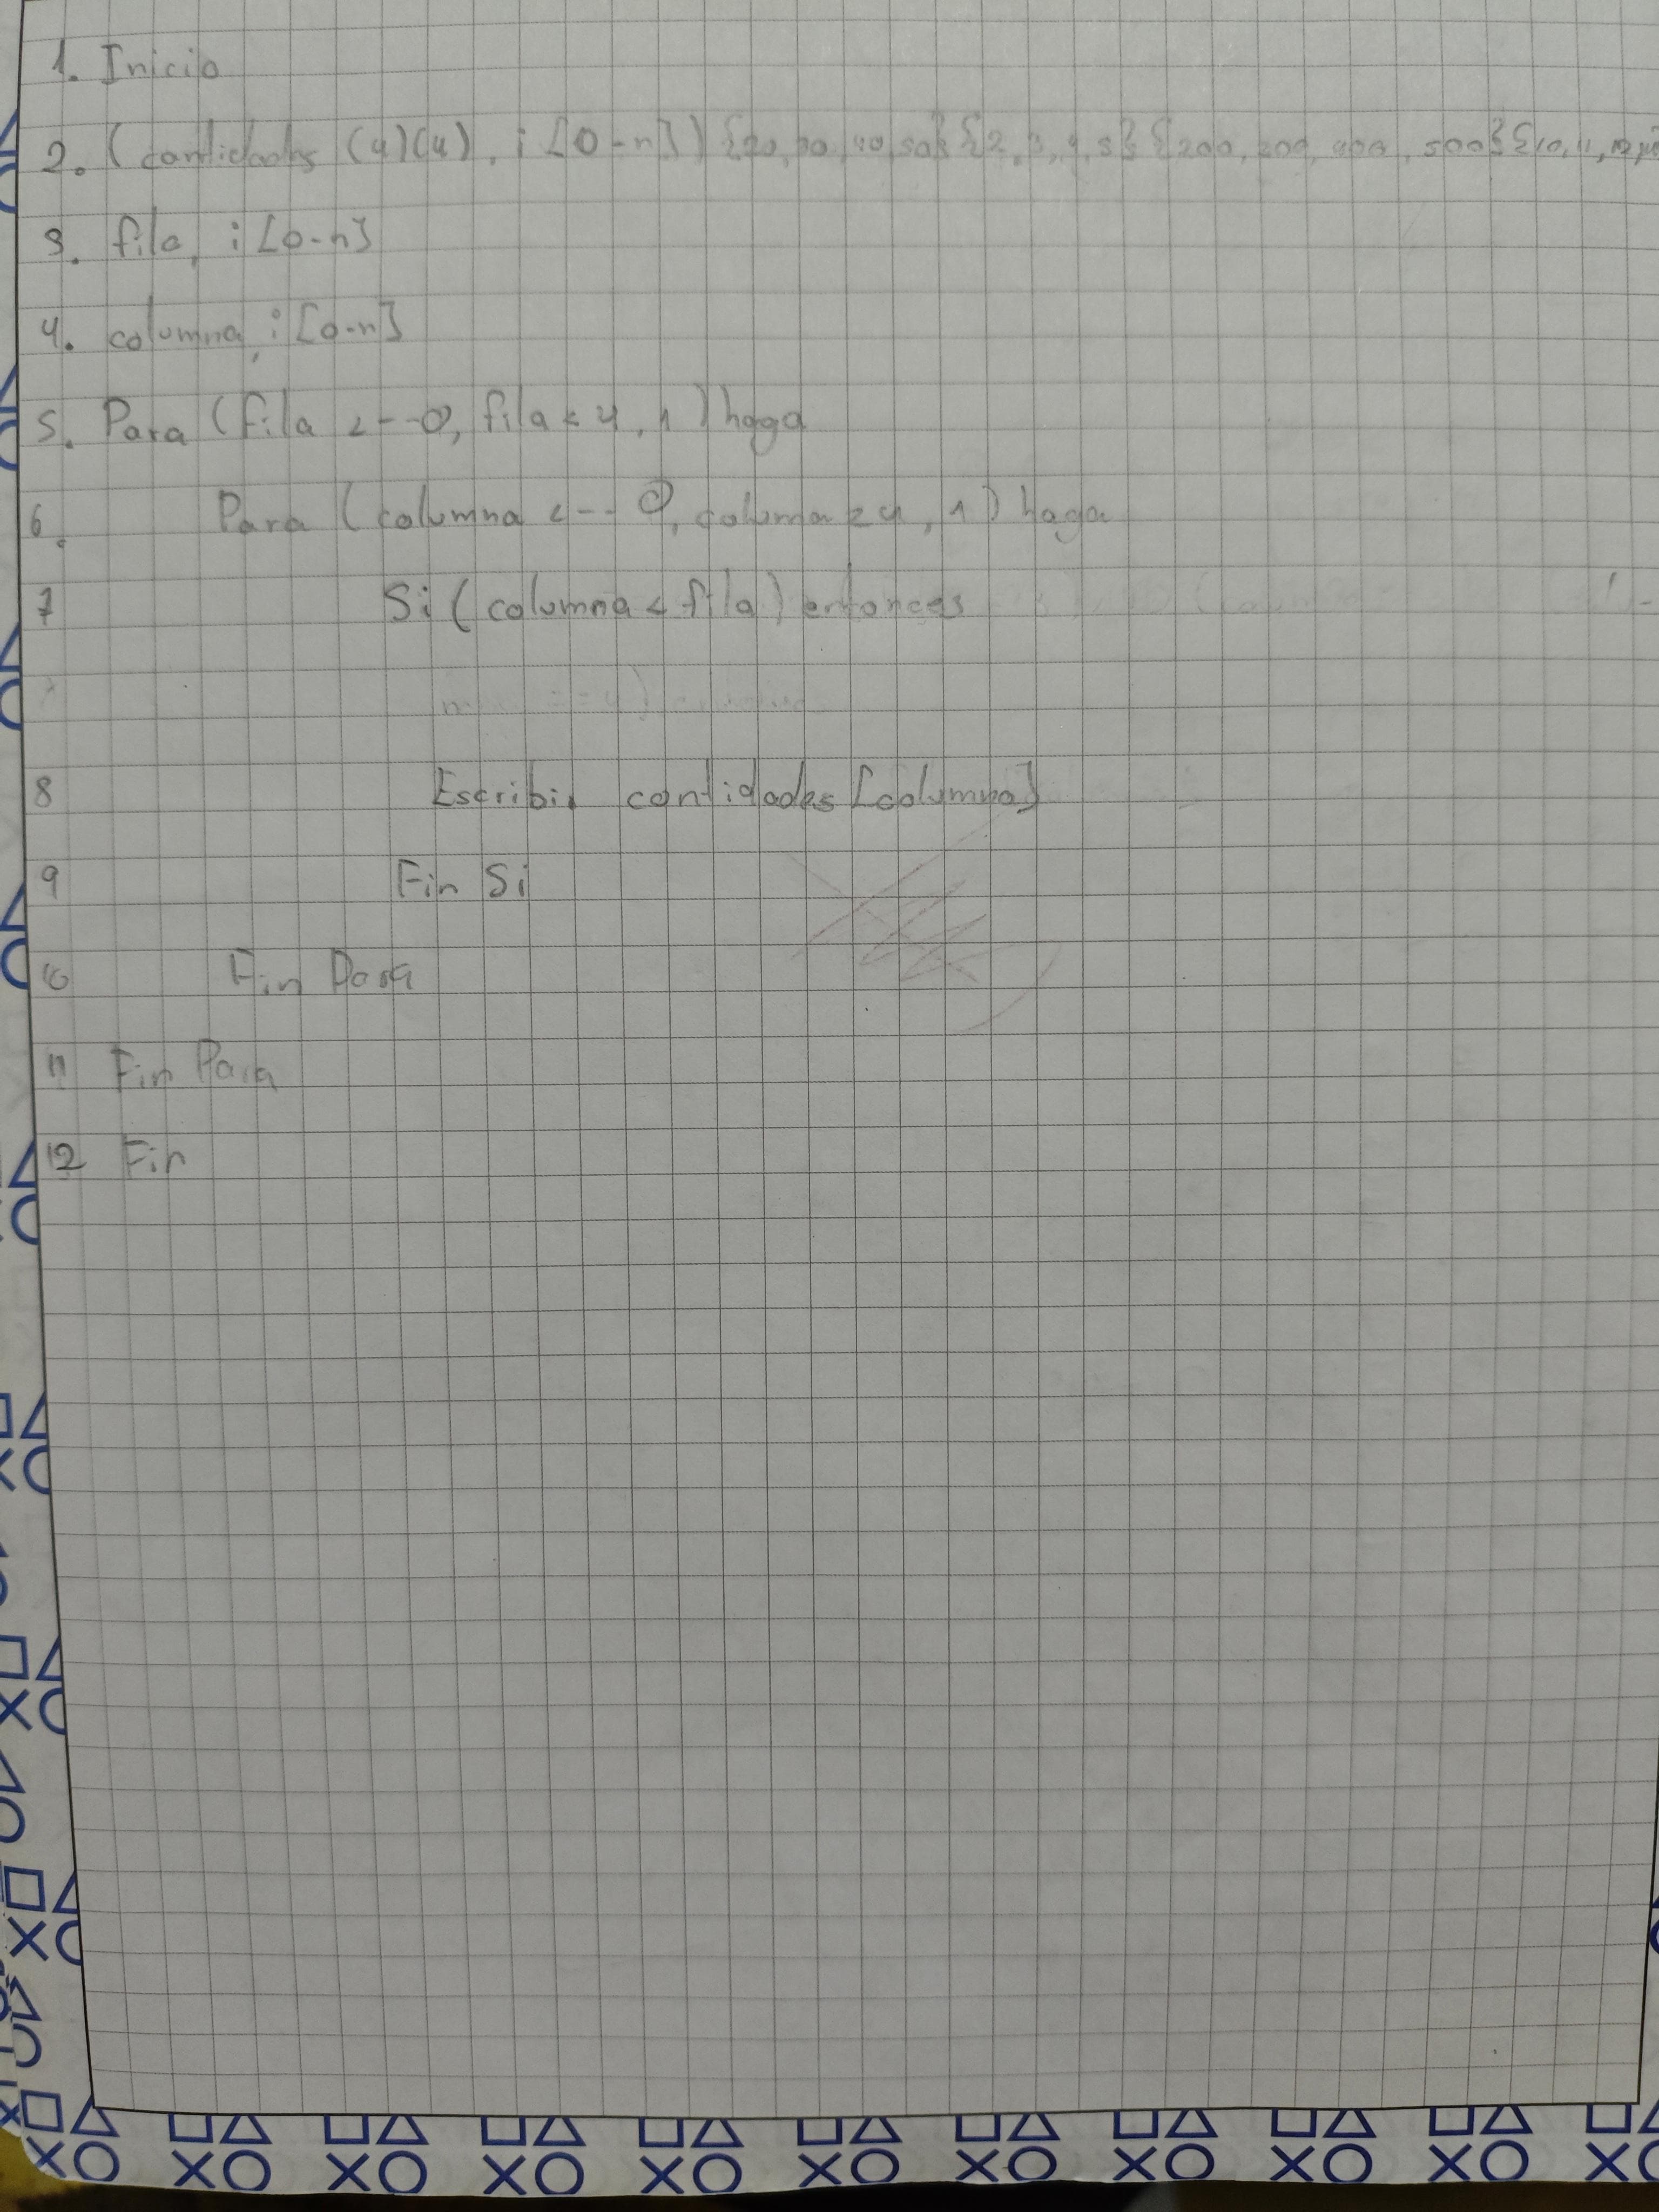 1. Inicio
2. (cantidades (4)(4), i [0-n]) {20, 30, 40, 50} {2, 3, 4, 5} {200, 200, 400, 500} {10, 11, 12,
3. fila, i [0-n]
4. columna, i [0-n]
5. Para (fila <-- 0, fila < 4, 1) haga
6. Para (columna <-- 0, columna < 4, 1) haga
7 Si (columna < fila) entonces
8 Escribir cantidades [columna]
9 Fin Si
10 Fin Para
11 Fin Para
12 Fin